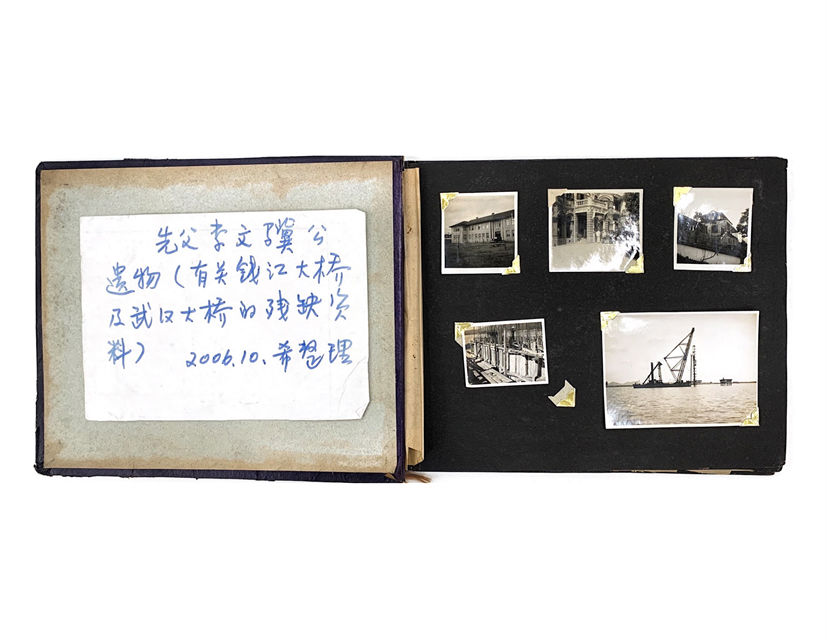 先父李文骥公
遗物（有关钱江大桥
及武汉大桥的残缺资
料） 2006.10.希整理